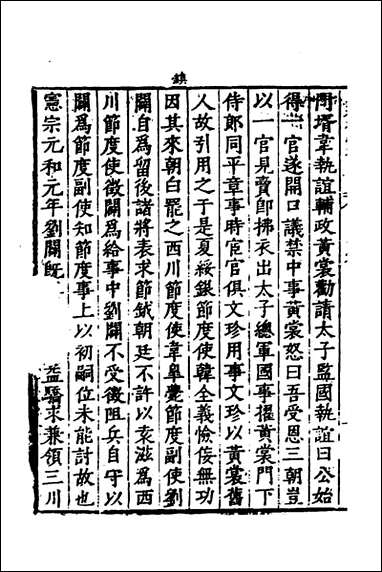 鎮
時壻韋執誼輔政黃裳勸請太子監國執誼曰公始
得一官遂開口議禁中事黃裳怒曰吾受恩三朝豈
以一官見賣卽拂衣出太子總軍國事擢黃裳門下
侍郎同平章事時宦官俱文珍用事文珍以黃裳舊
人故引用之于是夏綏銀節度使韓全義憸佞無功
因其來朝白罷之西川節度使韋皐薨節度副使劉
闢自爲留後諸將表求節鉞朝廷不許以袁滋爲西
川節度使徵闢爲給事中劉闢不受徵阻兵自守以
闢爲節度副使知節度事上以初嗣位未能討故也
憲宗元和元年劉闢旣 益驕求兼領三川